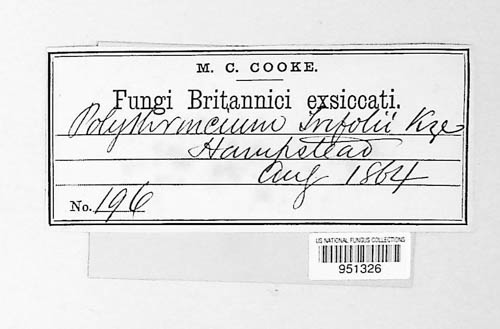 M. C. COOKE.
Fungi Britannici exsiccati.
Polythrincium Trifolii Kze
Hampstead
Aug 1864
No. 196
US NATIONAL FUNGUS COLLECTIONS
951326